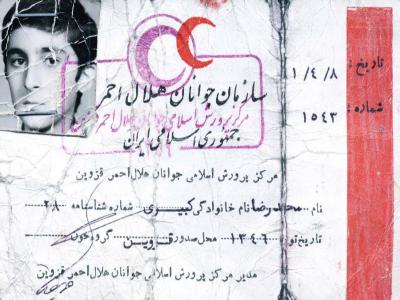 سازمان جوانان هلال احمر
مرکز پرورش اسلامی جوانان هلال احمر قزوین
جمهوری اسلامی ایران
تاریخ: ۱/۴/۸
شماره: ۱۵۴۳
مرکز پرورش اسلامی جوانان هلال احمر قزوین
نام محمدرضا نام خانوادگی کبیری شماره شناسنامه ۲۸
تاریخ تو ۱۳۴۶ محل صدور قزوین گروه خون
مدیر مرکز پرورش اسلامی جوانان هلال احمر قزوین